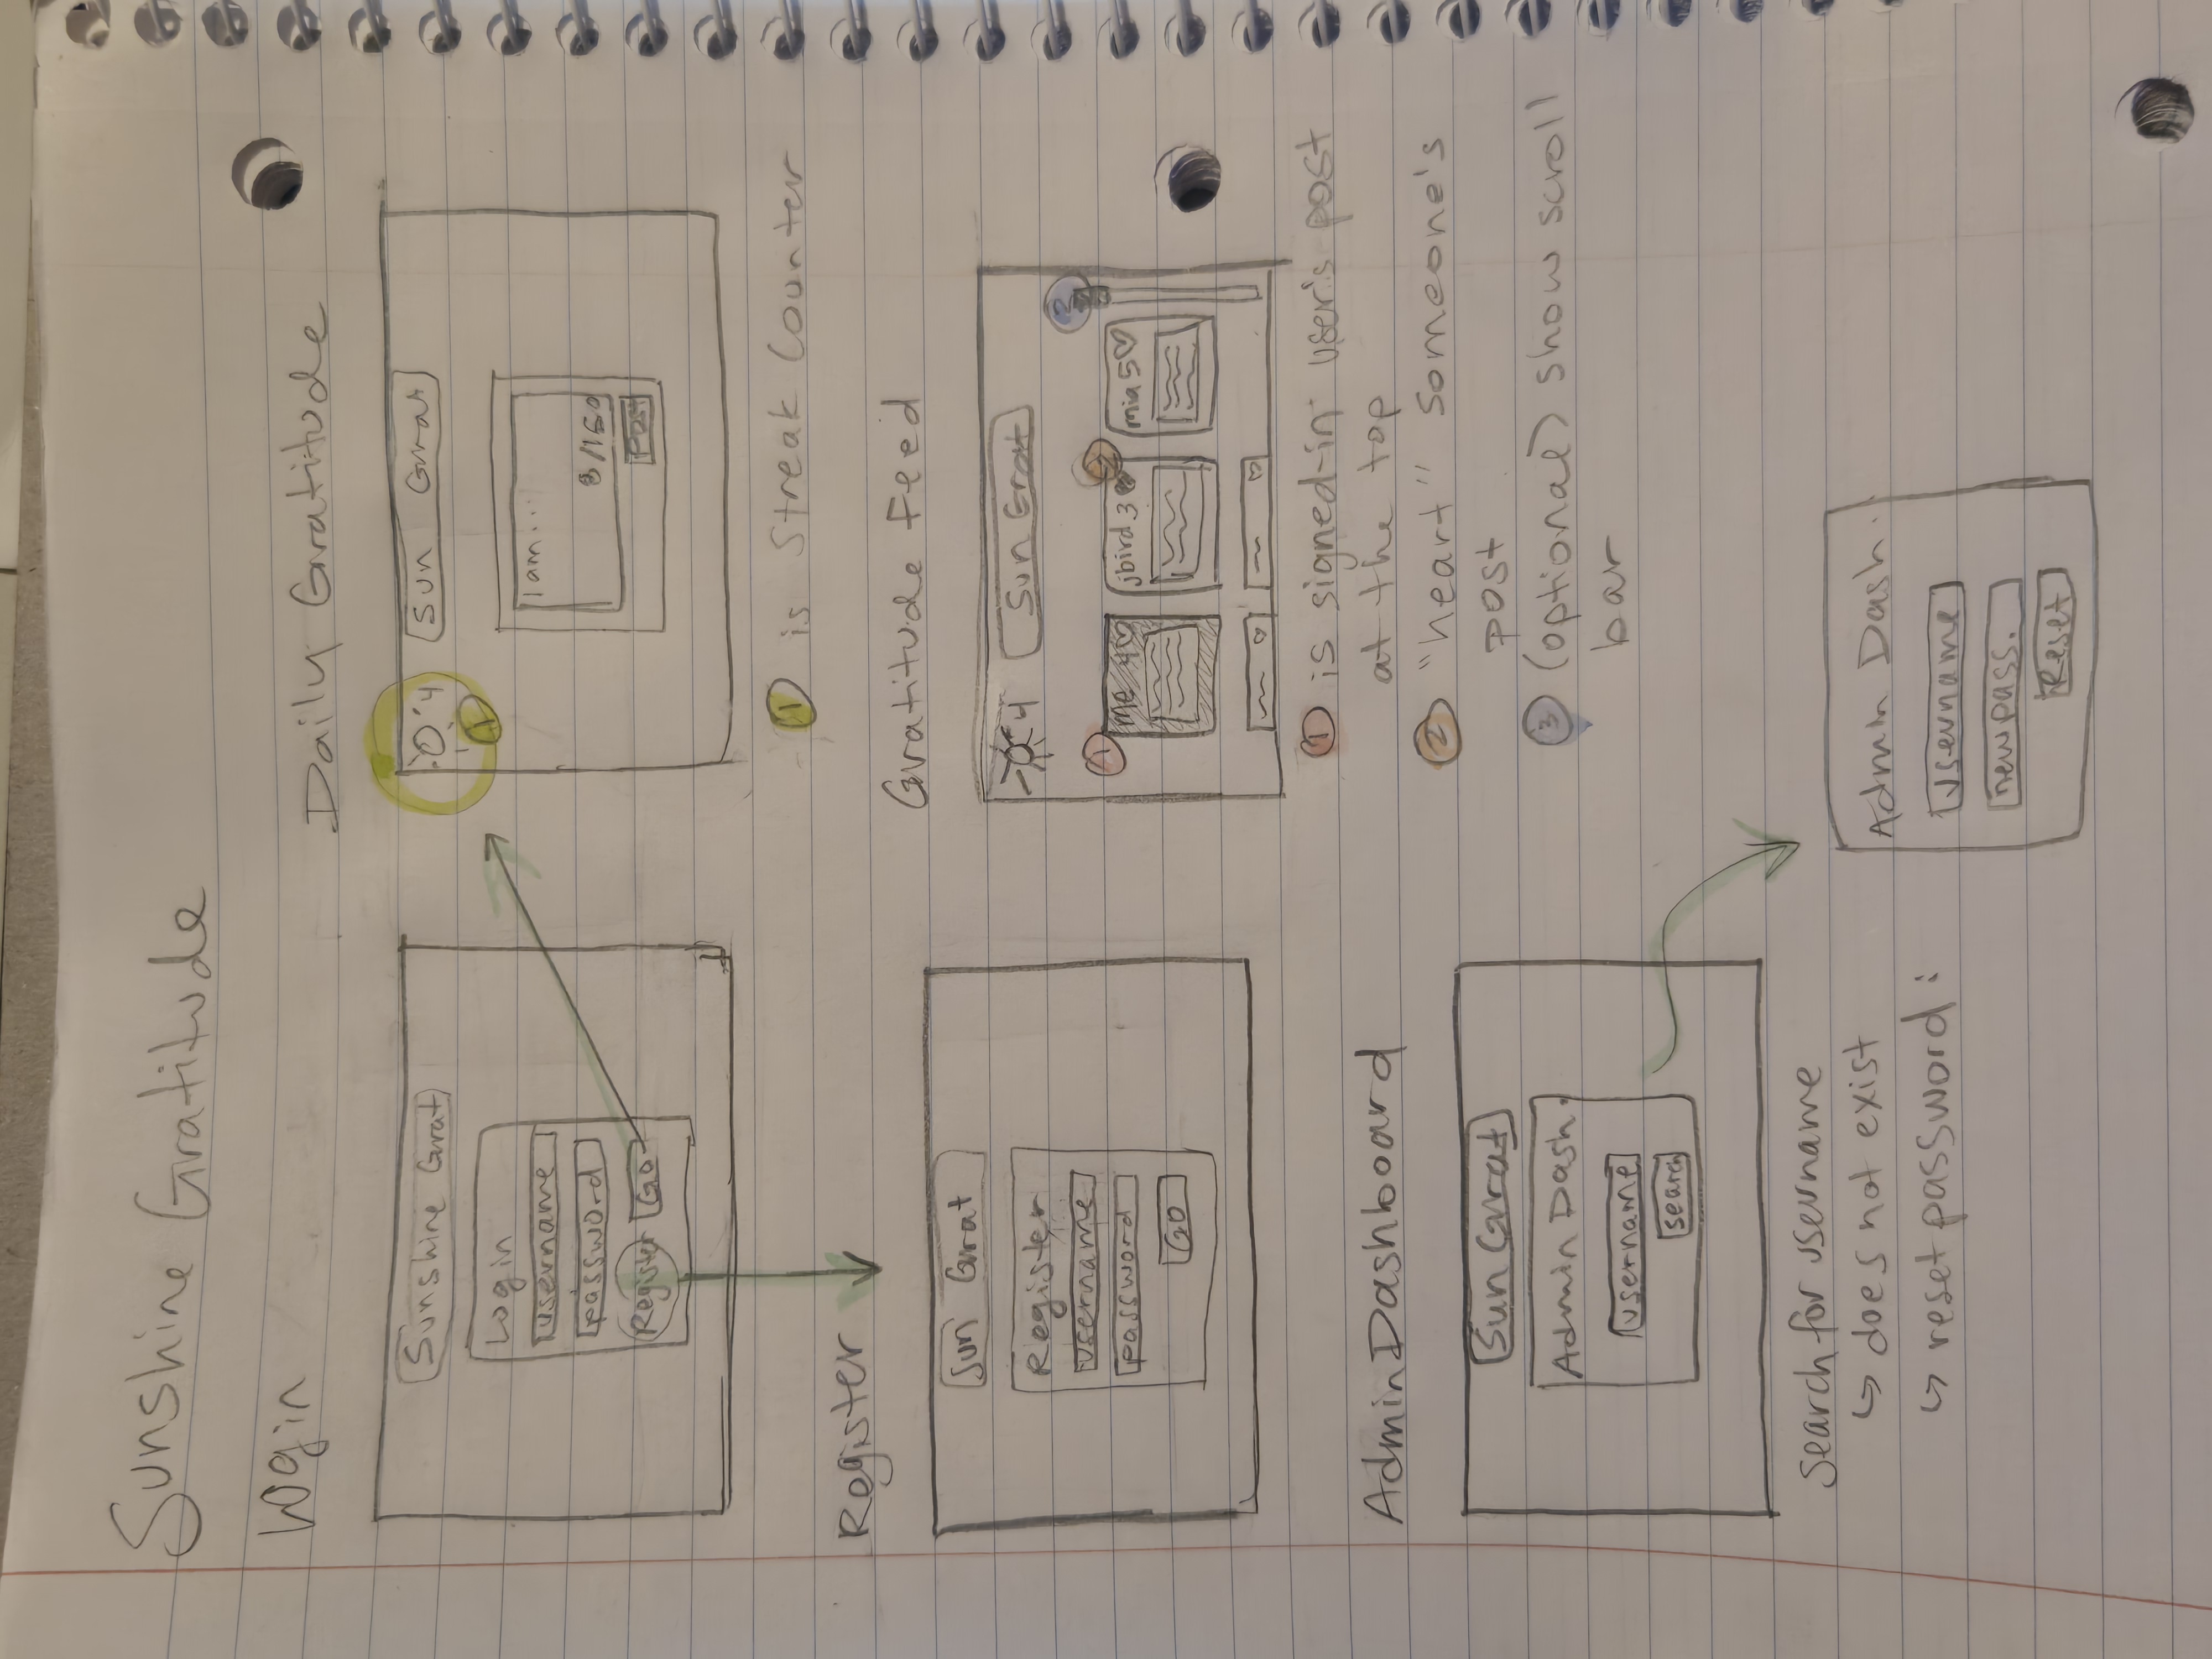 Sunshine Gratitude
Login
Sunshine Grat
Login
username
password
Register Go
Daily Gratitude
4
Sun Grat
1
I am...
8/150
Post
1 is Streak Counter
Register
Sun Grat
Register
username
password
GO
Gratitude Feed
4
Sun Grat
3
1
2
me 4♡
jbird 3♥
mia 5♡
1 is signed-in user's post
at the top
2 "heart" someone's
post
3 (optional) show scroll
bar
Admin Dashboard
Sun Grat
Admin Dash.
username
search
search for username
↳ does not exist
↳ reset password:
Admin Dash.
username
new pass.
Reset